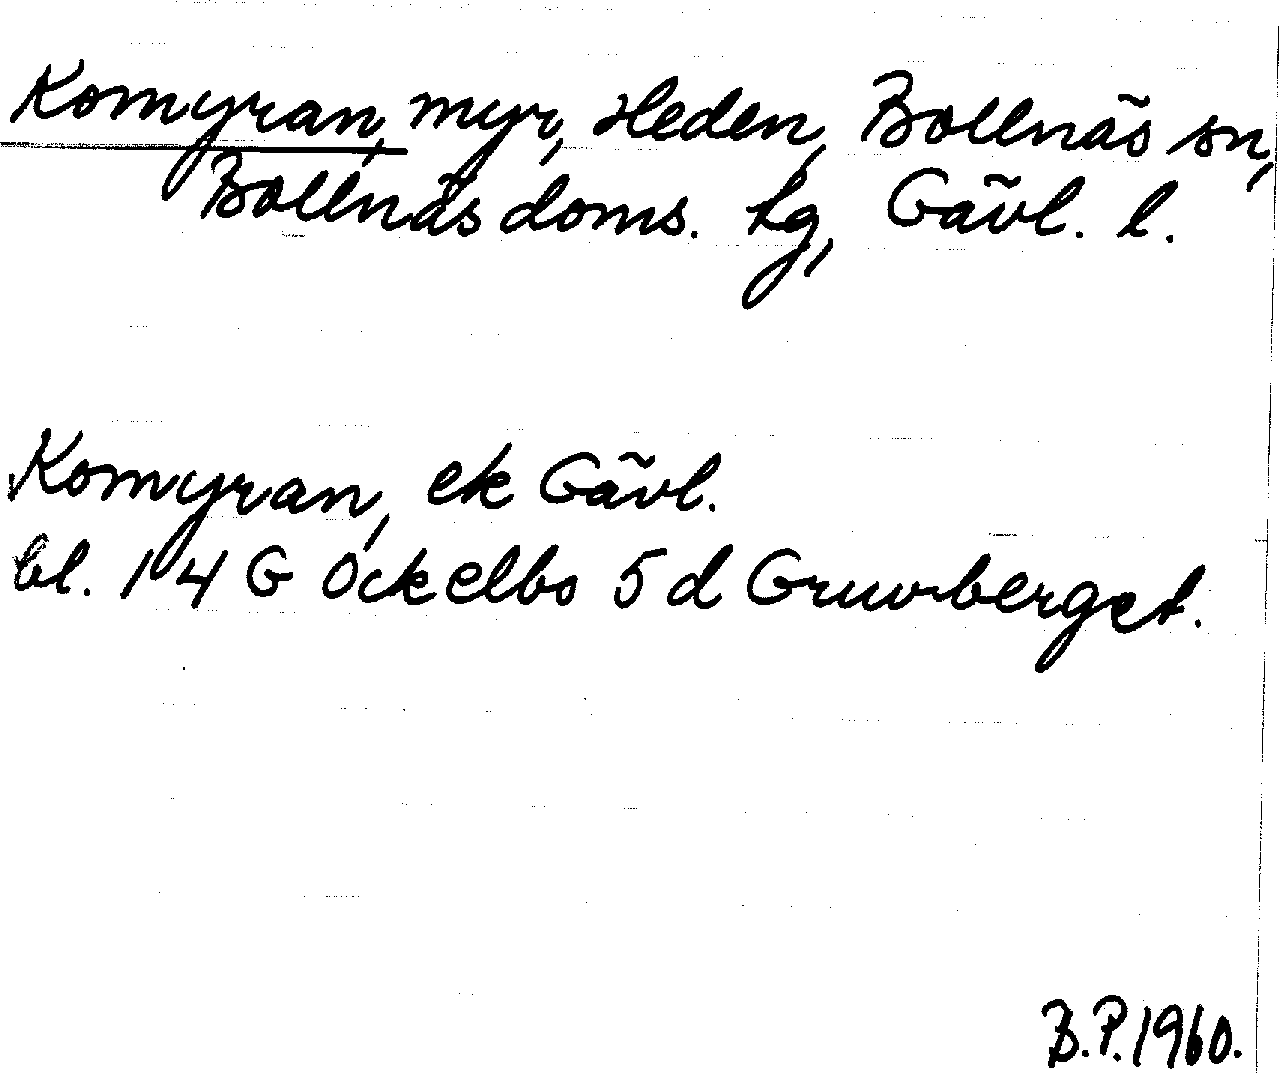 Komyran, myr, Heden, Bollnäs sn,
Bollnäs doms. hg, Gävl. l.
Komyran, ek Gävl.
bl. 14 G Ockelbo 5 d Gruvberget.
B.P. 1960.